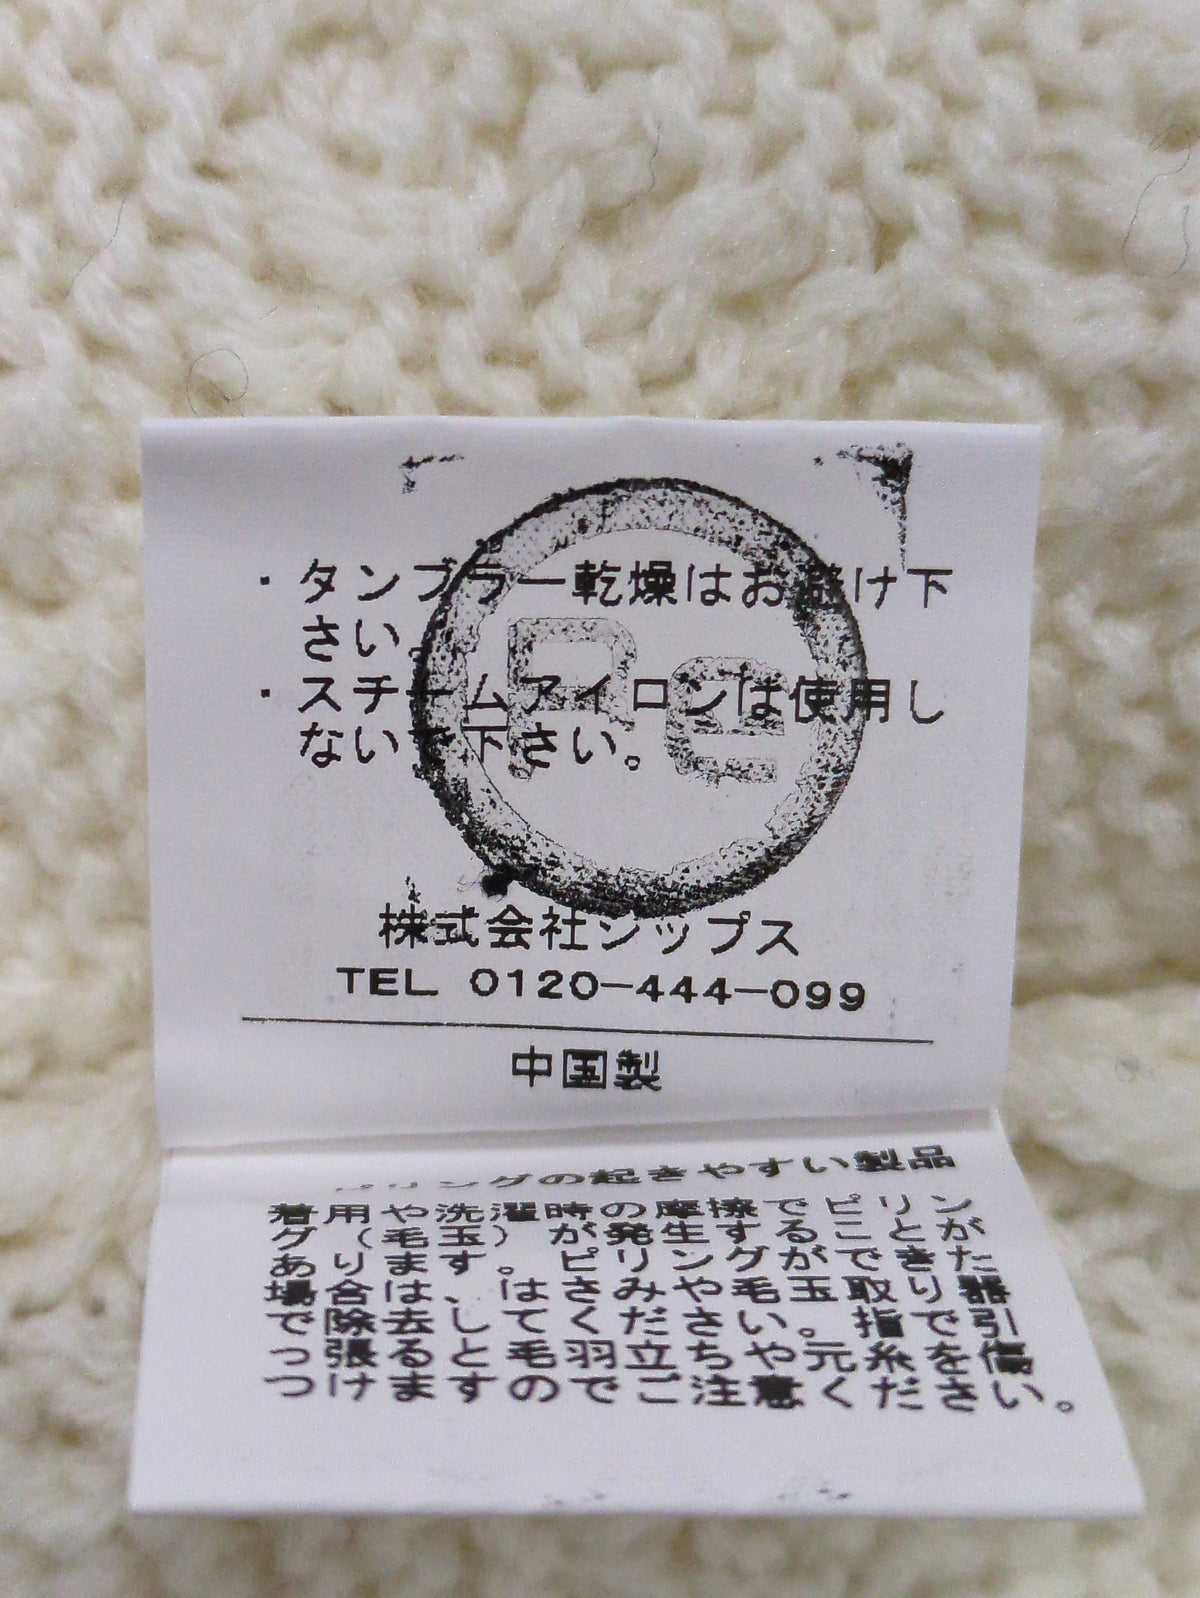 ・タンブラー乾燥はお避け下
さい。
・スチームアイロンは使用し
ないで下さい。
Re
株式会社シップス
TEL 0120-444-099
中国製
ピリングの起きやすい製品
着用や洗濯時の摩擦でピリン
グ(毛玉)が発生することが
あります。ピリングができた
場合は、はさみや毛玉取り器
で除去してください。指で引
っ張ると毛羽立ちや元糸を傷
つけますのでご注意ください。